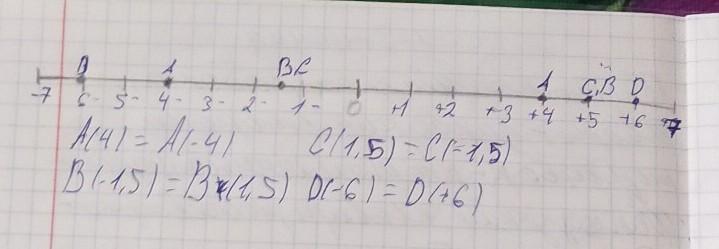 D A BC A C,B D
-7 6- 5- 4- 3- 2- 1- 0 +1 +2 +3 +4 +5 +6 +7
A(4) = A(-4) C(1,5) = C(-1,5)
B(-1,5) = B(1,5) D(-6) = D(+6)